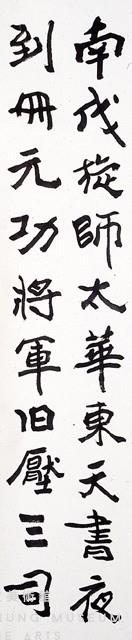 南伐旋師太華東天書夜
到冊元功將軍旧壓三司